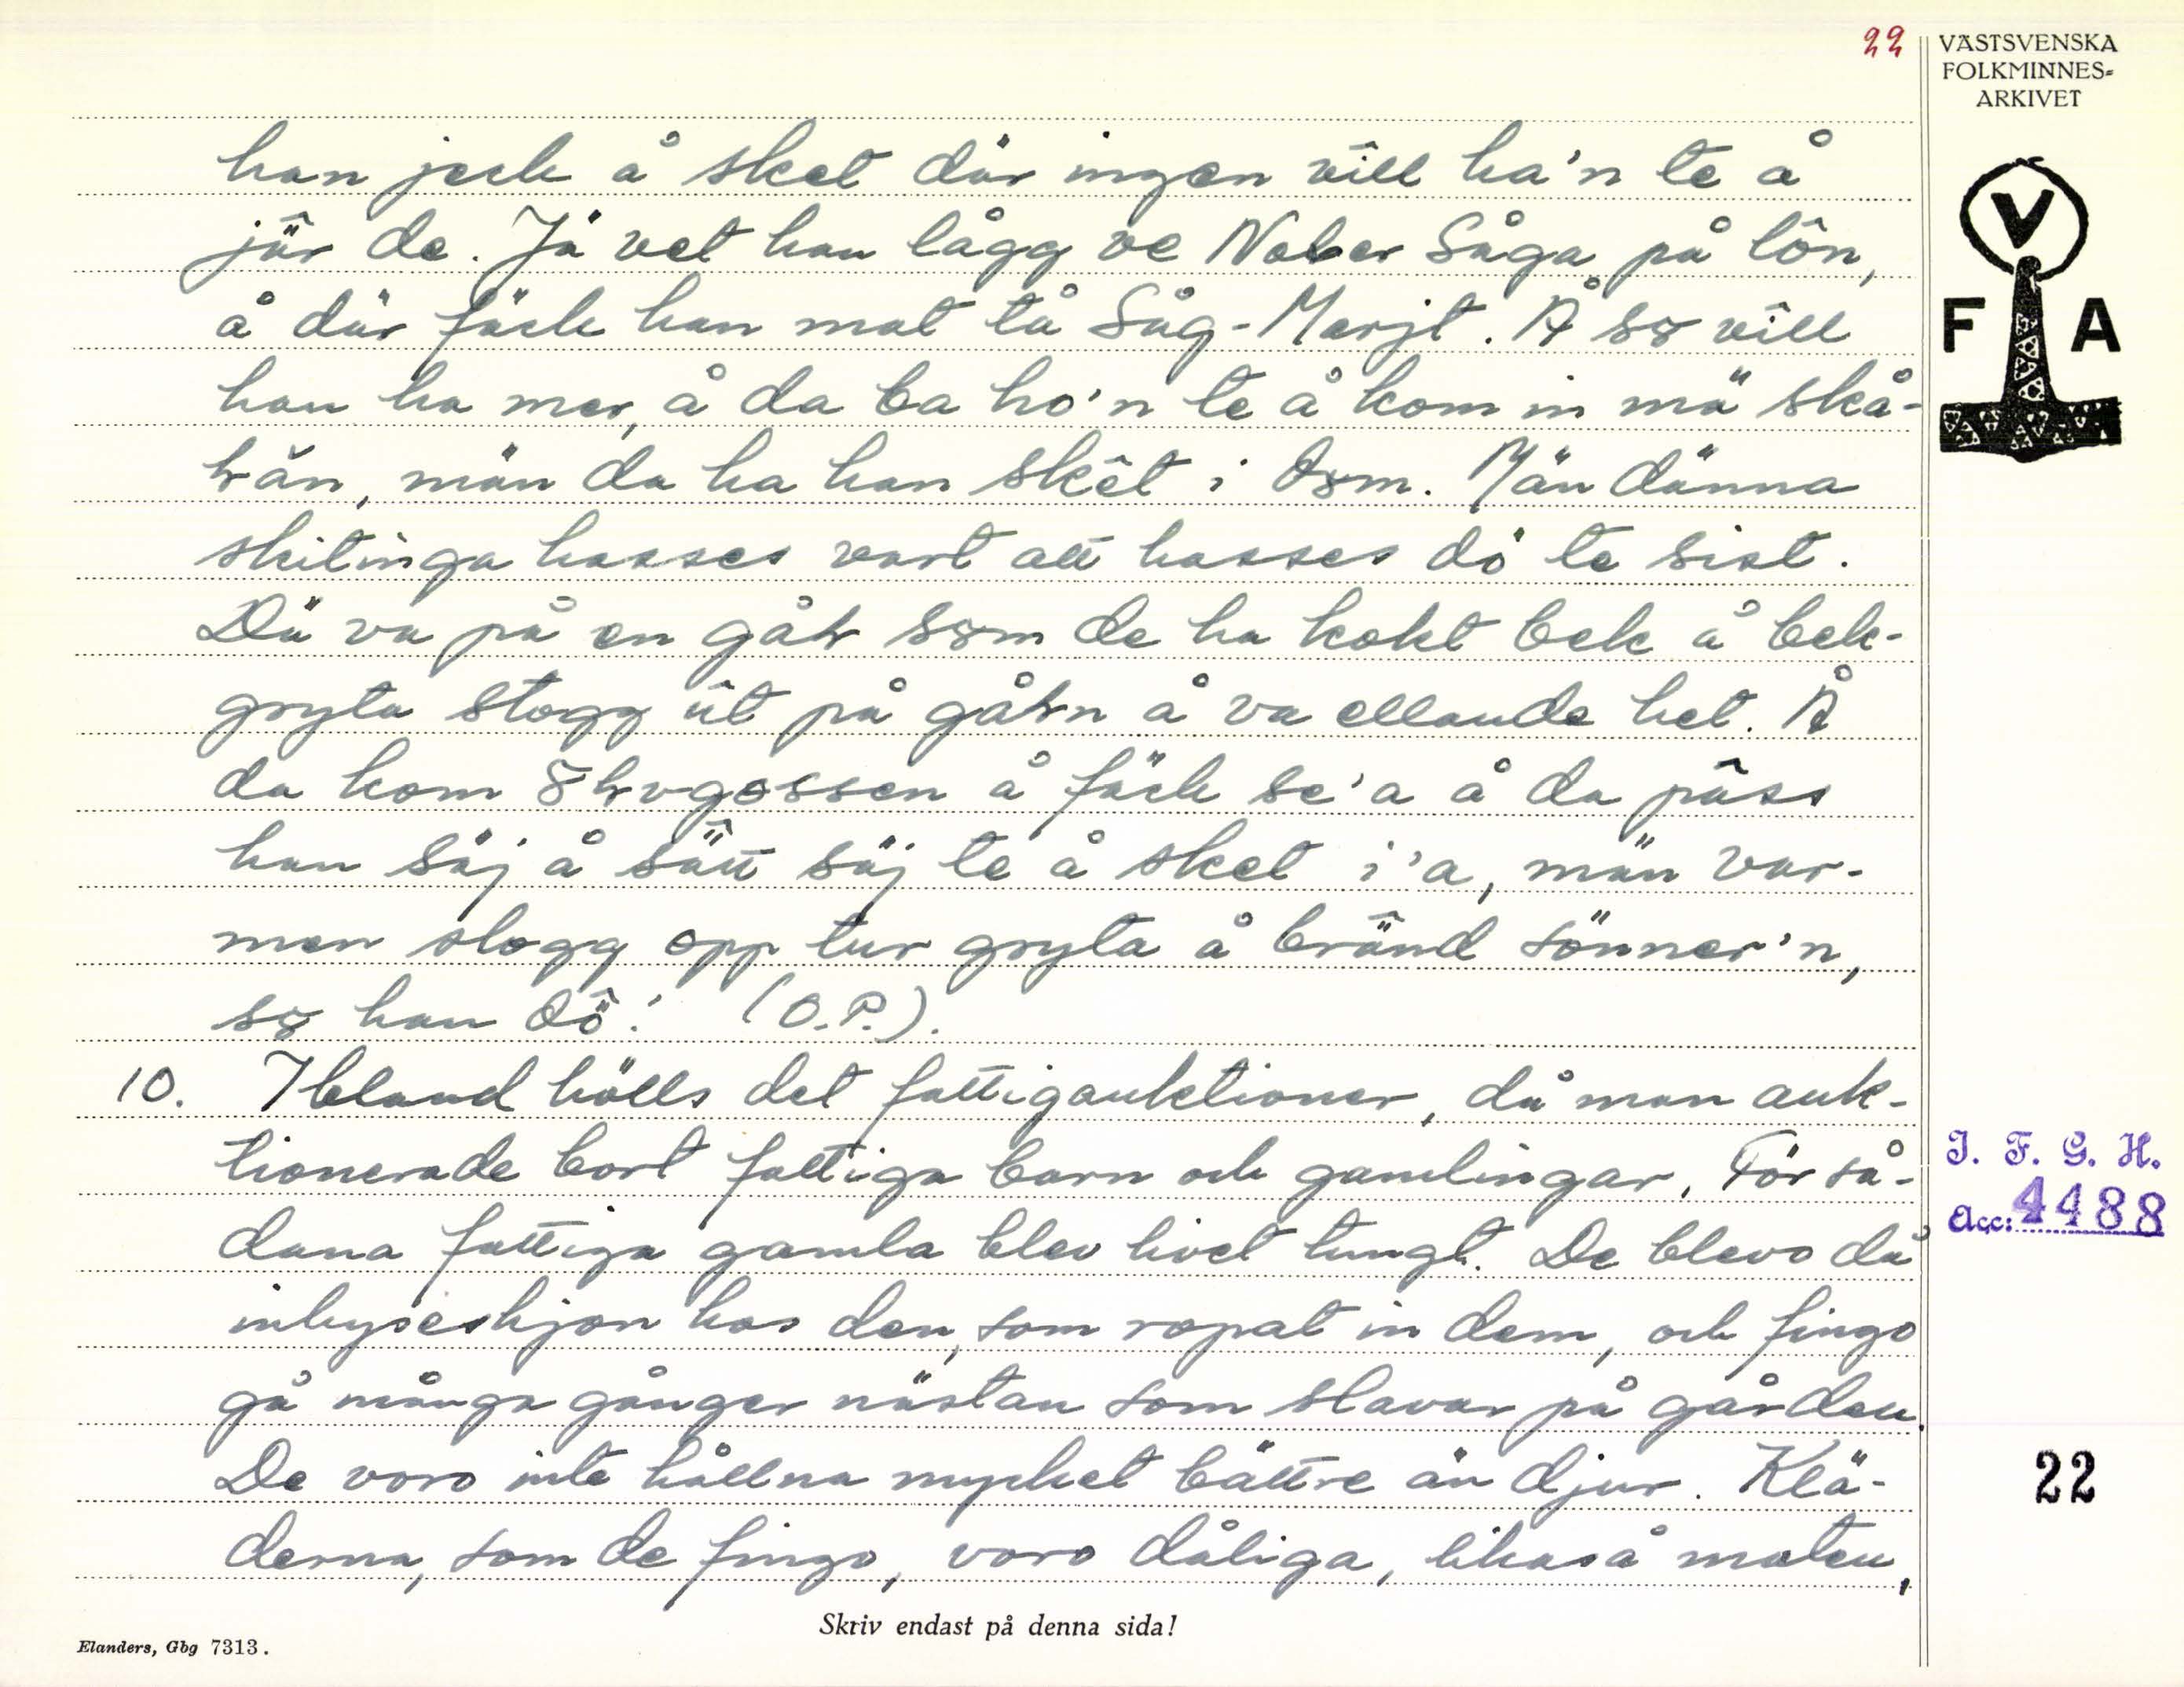 22
VÄSTSVENSKA
FOLKMINNES-
ARKIVET
V
F A
han jeck å sket där ingen vîll ha'n te å
jâ̈r de. Jä vet han lågg ve Nober Såga på lôn,
å där fäck han mat tå Såg-Marjt. Å sɤ vîll
han ha mer, å da ba ho'n te å kom in mä skå-
ƚăn, män da ha han skêt i ɤsm. Män dänna
skitinga hasses vart all hasses dö te sist.
Dä va på en gåƚ sɤm de ha kokt bek å bek-
gryta stogg ût på gåƚn å va ellande het. Å
da kom ɤƚvgossen å fäck se'a å da pâss
han säj å sâ̈tt säj te å sket i'a, män var-
men slogg opp tur gryta å brâ̈nd sönner'n,
sɤ han dô̈! (O.P.).
10. Ibland hölls det fattigauktioner, då man auk-
tionerade bort fattiga barn och gamlingar. För så-
dana fattiga gamla blev livet tungt. De blevo då
inhyseshjon hos den, som ropat in dem, och fingo
gå många gånger nästan som slavar på gården.
De voro inte hållna mycket bättre än djur. Klä-
derna, som de fingo, voro dåliga, likaså maten,
I. F. G. H.
Acc: 4488
22
Skriv endast på denna sida!
Elanders, Gbg 7313.